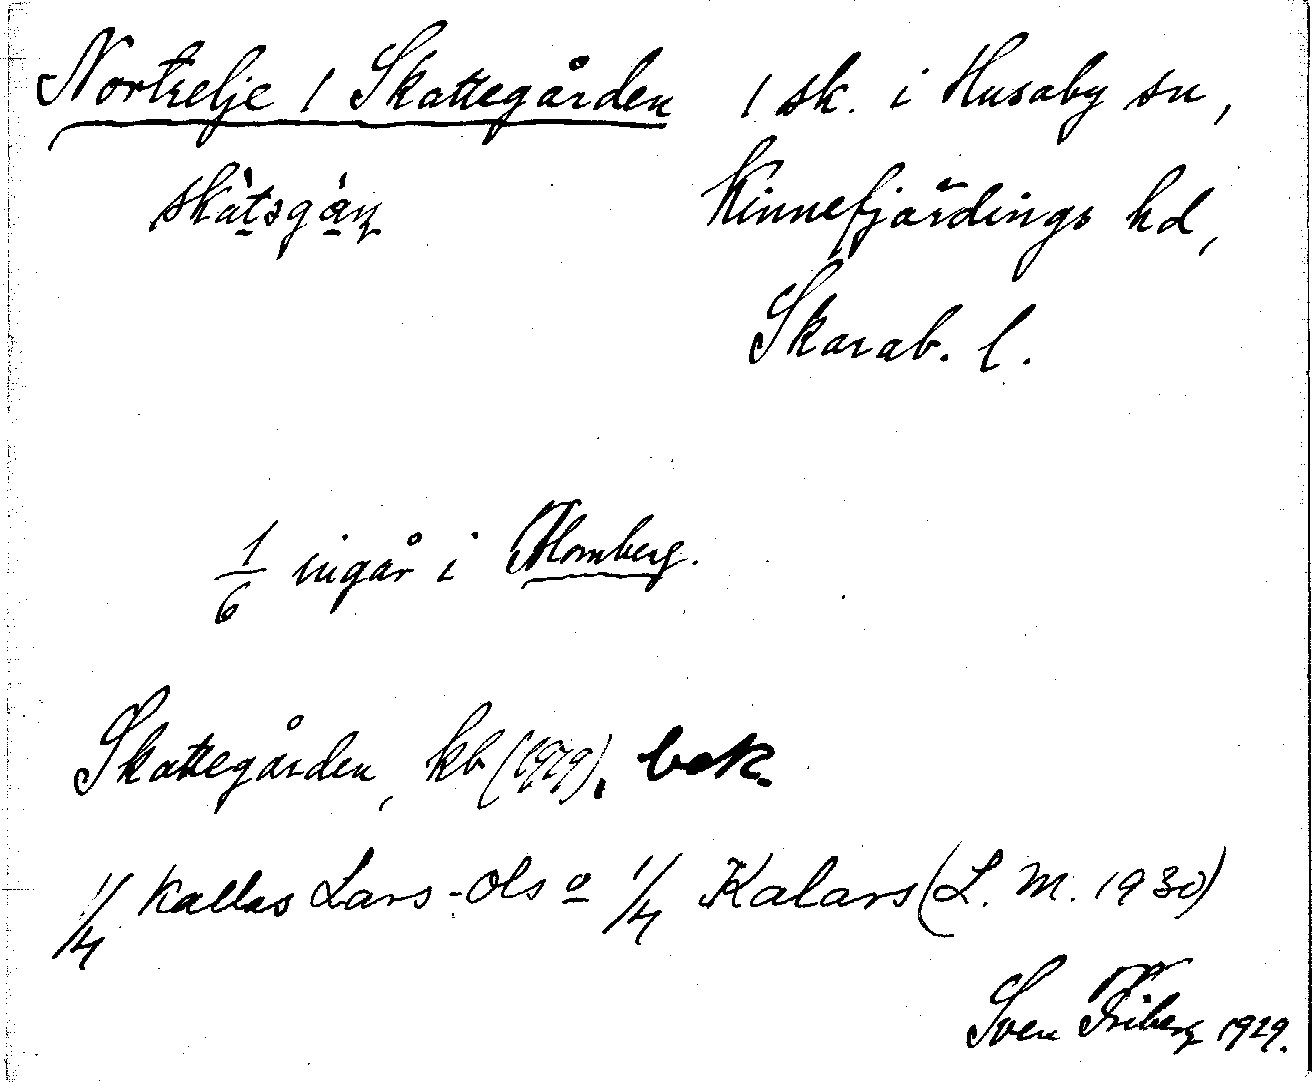 Nortselje 1 Skattegården 1 sk. i Husaby sn,
skàtsgàṇ Kinnefjärdings hd,
Skarab. l.
1/6 ingår i Blomberg.
Skattegården, kb (1929), bek.
1/4 kallas Lars-Ols o 1/4 Kalars (L. M. 1930)
Sven Friberg 1929.